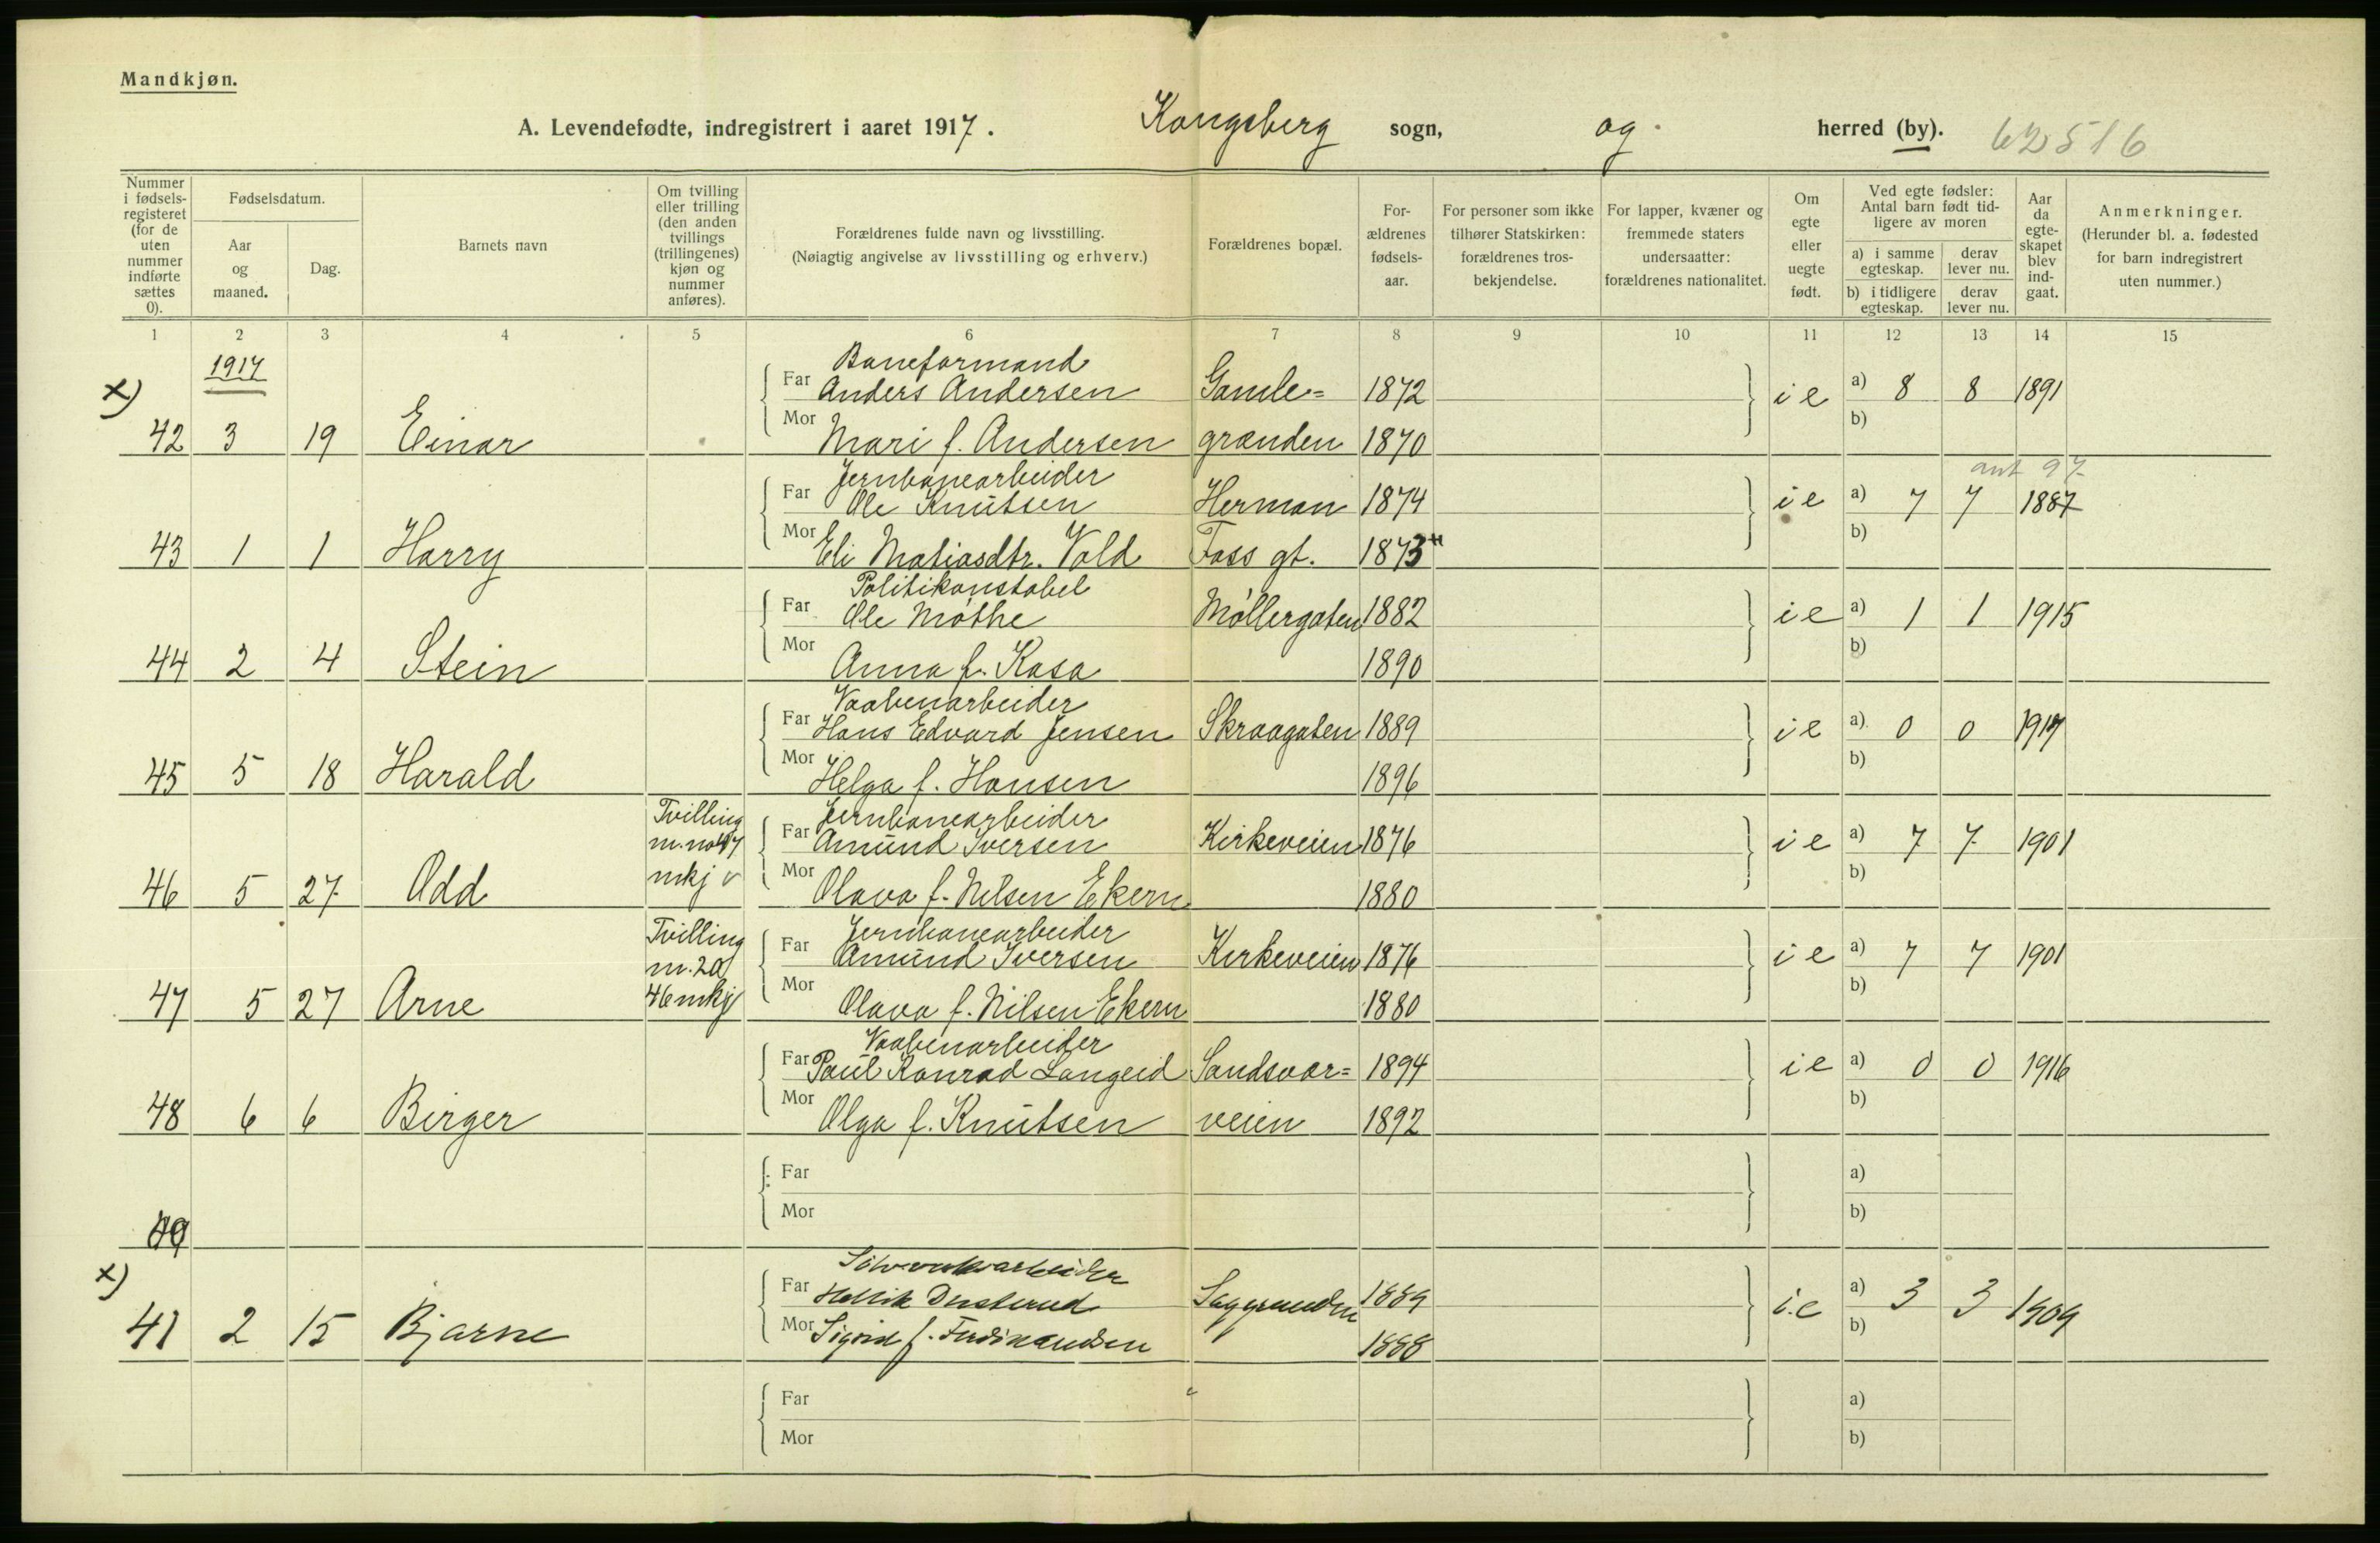 Mandkjøn.
A. Levendefødte, indregistrert i aaret 1917. Kongsberg sogn, og herred (by). 62516
Nummer i fødsels-registeret (for de uten nummer indførte sættes 0).
Fødselsdatum.
Aar og maaned.
Dag.
Barnets navn
Om tvilling eller trilling (den anden tvillings (trillingenes) kjøn og nummer anføres).
Forældrenes fulde navn og livsstilling.
(Nøiagtig angivelse av livsstilling og erhverv.)
Forældrenes bopæl.
For-ældrenes fødsels-aar.
For personer som ikke tilhører Statskirken: forældrenes tros-bekjendelse.
For lapper, kvæner og fremmede staters undersaatter: forældrenes nationalitet.
Om egte eller uegte født.
Ved egte fødsler: Antal barn født tid-ligere av moren
a) i samme egteskap. derav lever nu.
b) i tidligere egteskap. derav lever nu.
Aar da egte-skapet blev ind-gaat.
Anmerkninger.
(Herunder bl. a. fødested for barn indregistrert uten nummer.)
1 2 3 4 5 6 7 8 9 10 11 12 13 14 15
1917
Baneformand
x) Far Anders Andersen Gamle= 1872 i e a) 8 8 1891
42 3 19 Einar Mor Mari f. Andersen grænden 1870 b)
Jernbanearbeider ant 97
Far Ole Knutsen Herman 1874 i e a) 7 7 1887
43 1 1 Harry Mor Eli Matiasdtr. Vold Foss gt. 1873 b)
Politikonstabel
Far Ole Møthe Møllergaten 1882 i e a) 1 1 1915
44 2 4 Stein Mor Anna f. Kasa 1890 b)
Vaabenarbeider
Far Hans Edvard Jensen Skraagaten 1889 i e a) 0 0 1917
45 5 18 Harald Mor Helga f. Hansen 1896 b)
Tvilling Jernbanearbeider
m. no 47 Far Amund Iversen Kirkeveien 1876 i e a) 7 7 1901
46 5 27 Odd mkj Mor Olava f. Nilsen Ekern 1880 b)
Tvilling Jernbanearbeider
m. no Far Amund Iversen Kirkeveien 1876 i e a) 7 7 1901
47 5 27 Arne 46 mkj Mor Olava f. Nilsen Ekern 1880 b)
Vaabenarbeider
Far Paul Konrad Langeid Sandsvær= 1894 i e a) 0 0 1916
48 6 6 Birger Mor Olga f. Knutsen veien 1892 b)
Far a)
49 Mor b)
Sølvverksarbeider
x) Far Hellik 1889 i.e a) 3 3 1909
41 2 15 Bjarne Mor Sigrid f. Ferdinandsen 1888 b)
Far a)
Mor b)